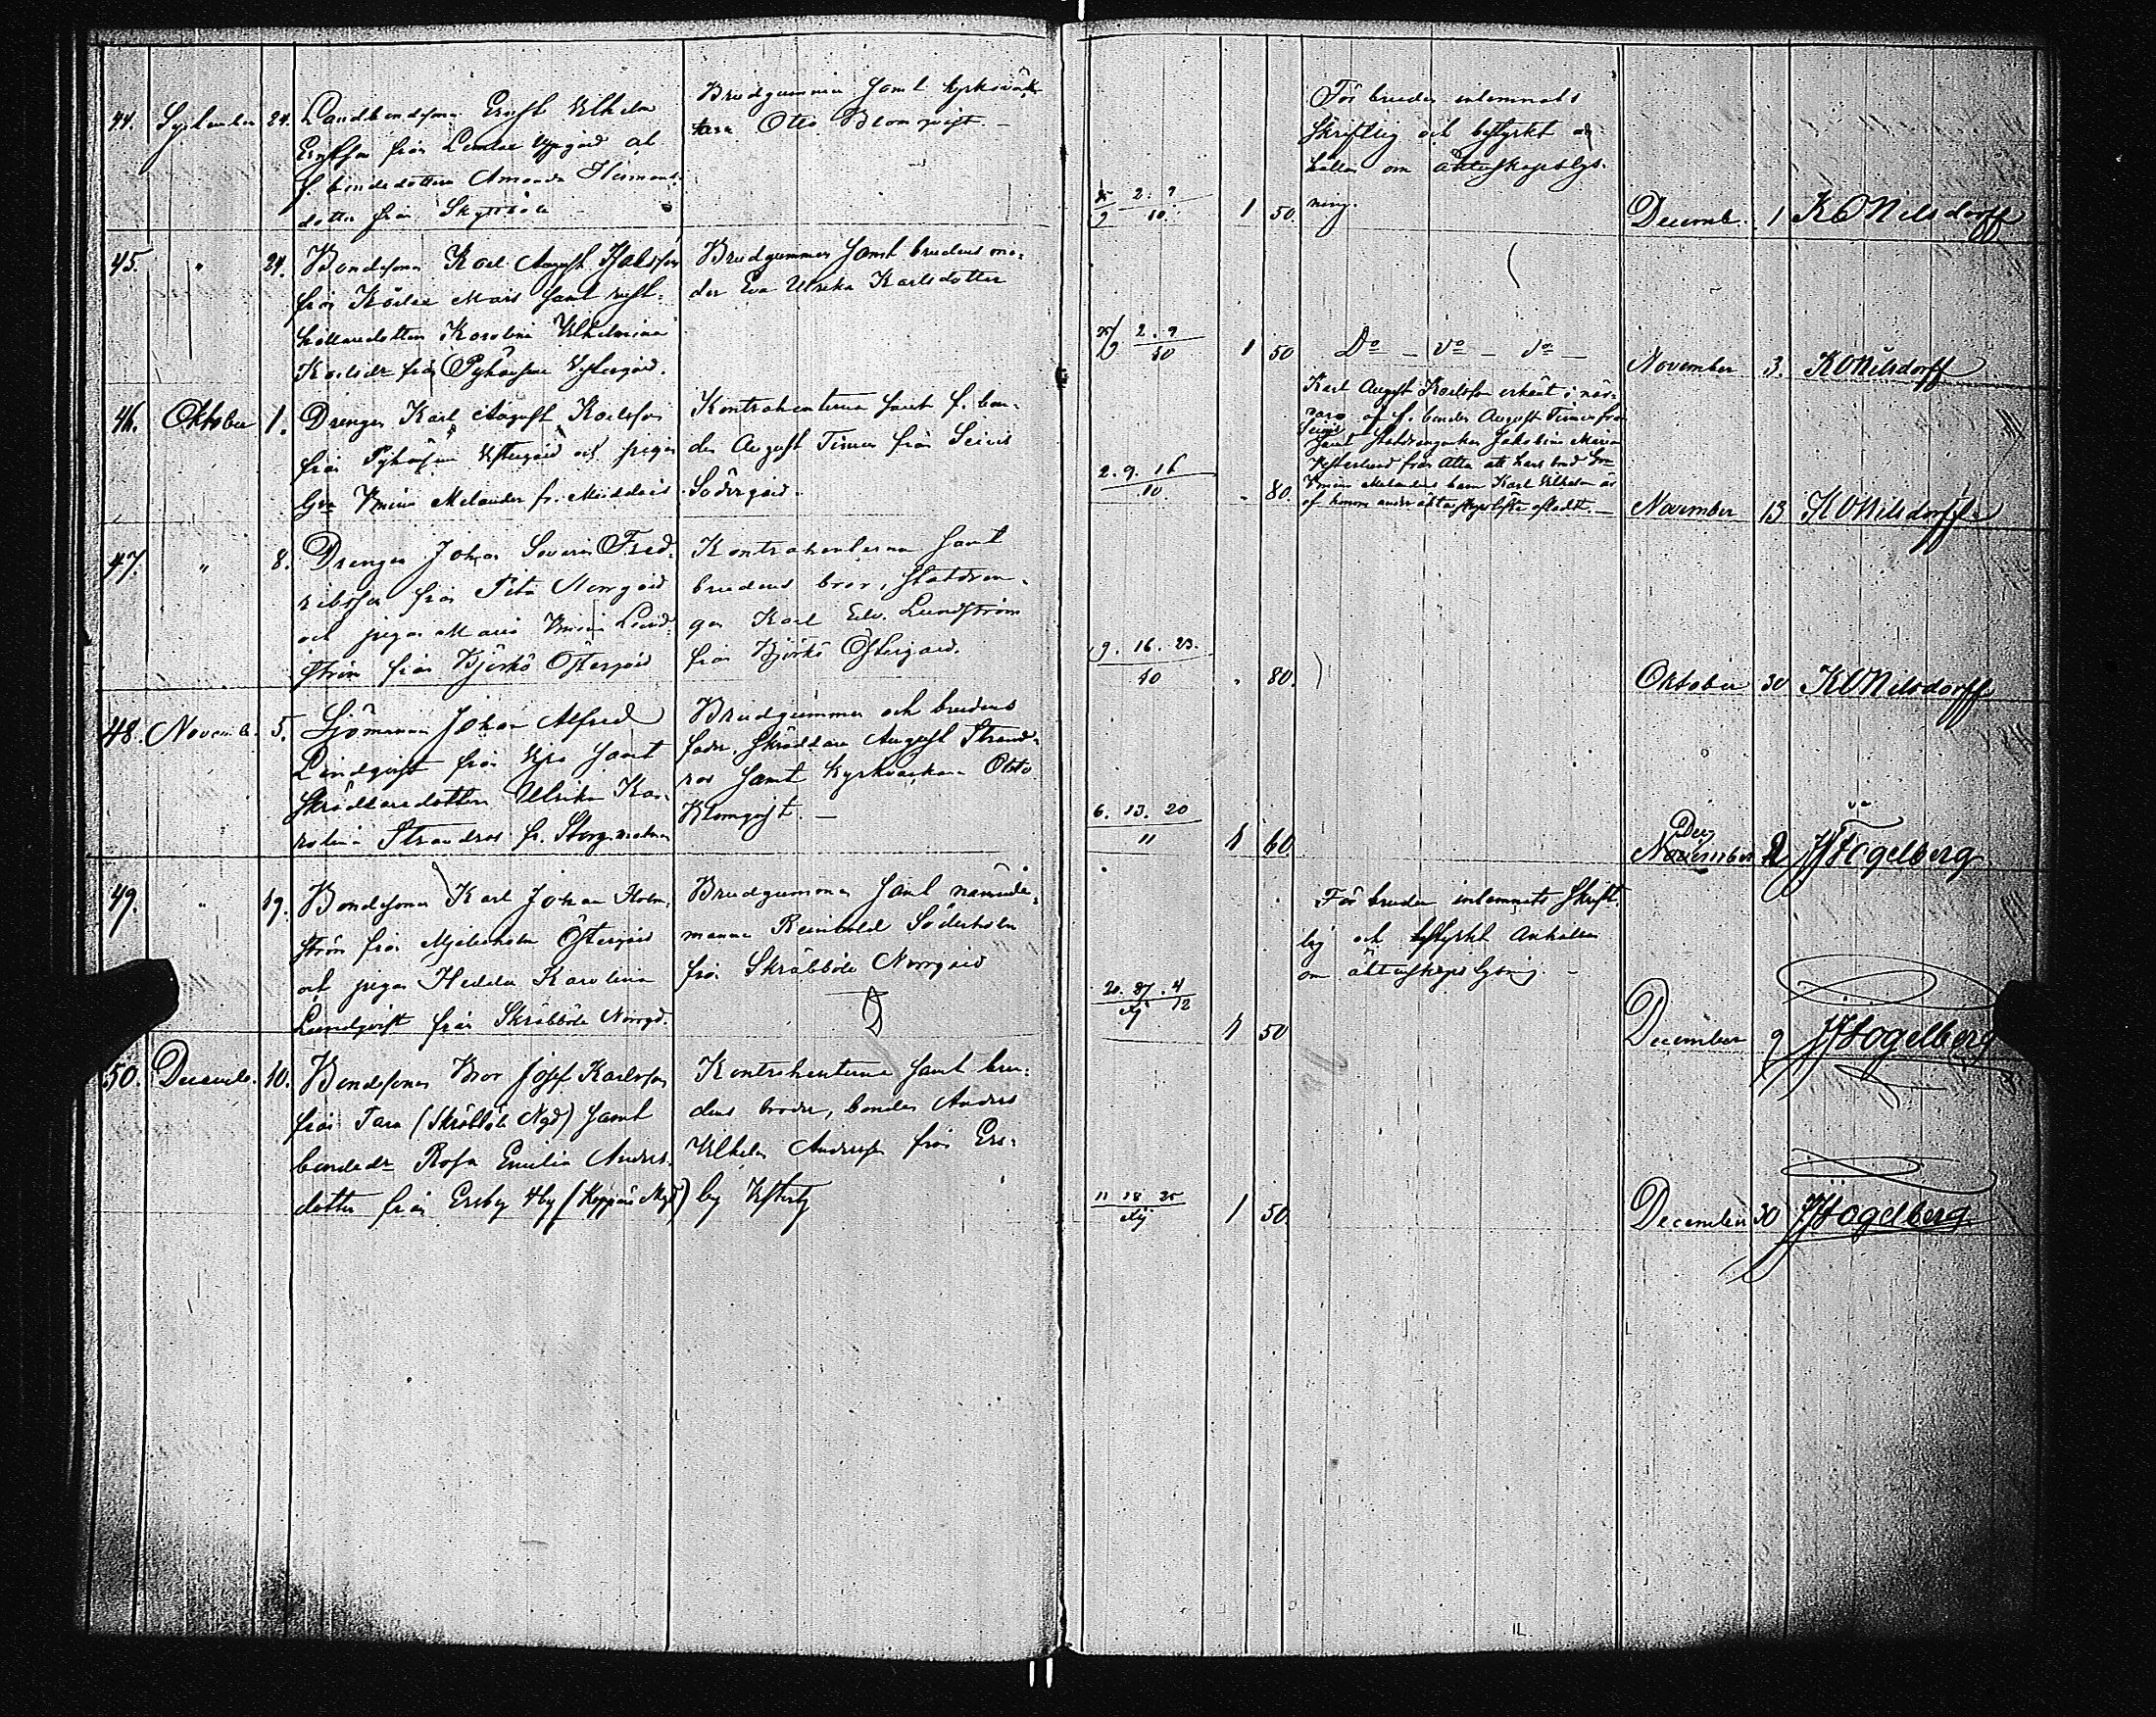 44. September 24. Landbondesonen Ernst Vilhelm
Ernstson från Lemlax Uppgård och
f. bondedottern Amanda Hermans-
dotter från Skyttböle
Brudgummen samt kyrkoväk-
taren Otto Blomqvist. —
25/9 2. 9/10. 1 50.
För bruden inlemnats
skriftlig och bestyrkt an-
hållan om äktenskapslys-
ning.
Decemb. 1 KONilsdorff
45. " 24. Bondesonen Karl August
från samt rust-
hållaredottern Karolina Vilhelmina
Karlsdr från Pyhäisne Vestergård.
Brudgummen samt brudens mo-
der Eva Ulrika Karlsdotter
25/9 2. 9/10 1 50
Do — do — do —
November 3. KONilsdorff
46. Oktober 1. Drengen Karl August Karlsson
från Pyhäisne Vestergård och pigan
Melander fr.
Kontrahenterna samt f. bon-
den August Timen från
Södergård.
2. 9. 16/10. " 80.
Karl August Karlsson erkänt i när-
varo af f. bonden August Timen från
samt statdrengenkan Jakobina Maria
Vesterlund från Atta att hans brud
Melanders barn Karl Vilhelm är
af honom under äktenskapslöfte afladt. —
November 13 KONilsdorff
47. " 8. Drengen Johan Severin Fred-
riksson från Norrgård
och pigan Maria Lund-
ström från Björkö Östergård
Kontrahenterna samt
brudens bror, statdren-
gen Karl Edv. Lundström
från Björkö Östergård.
9. 16. 23./10 " 80.
Oktober 30 KONilsdorff
48. Novemb. 5. Sjömannen Johan Alfred
Lindqvist från samt
Skräddaredottern Ulrika Ka-
rolina Strandros fr.
Brudgummen och brudens
fader, skräddare August Strand-
ros samt kyrkväktaren Otto
Blomqvist. —
6. 13. 20/11 1 60.
Dec
November 2 Fogelberg
49. " 19. Bondesonen Karl Johan Holm-
ström från Mjelisholm Östergård
och pigan Hedda Karolina
Lundqvist från Skräbböle Norrgd.
Brudgummen samt nämnde-
mannen Reinhold Söderholm
från Skräbböle Norrgård
20. 27. 4/XI 12 1 50
För bruden inlemnats skrift-
lig och bestyrkt anhållan
om äktenskapslysning. —
December 9 Fogelberg
50. Decemb. 10. Bondesonen Bror Josef Karlsson
från Tara (Skräbböle Ngd) samt
bondedr Rosa Emilia Anders-
dotter från Ersby Vby
Kontrahenterna samt bru-
dens broder, bonden Anders
Vilhelm Andersson från Ers-
by Vesterby
11 18 25/XII 1 50.
December 30 Fogelberg